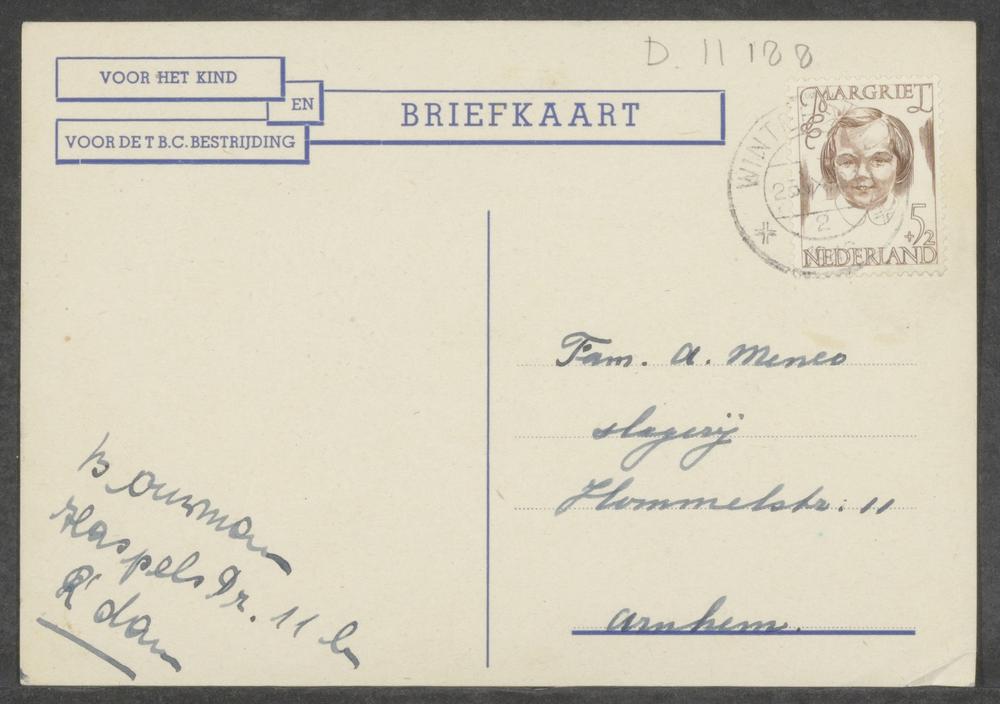 D. 11 188
VOOR HET KIND
EN
VOOR DE T B.C. BESTRIJDING
BRIEFKAART
MARGRIET
5
+2
NEDERLAND
WINT
2
Fam. A. Menco
slagerij
Hommelstr. 11
Arnhem.
Bouwman
Haspels Dr. 11 b
R'dam